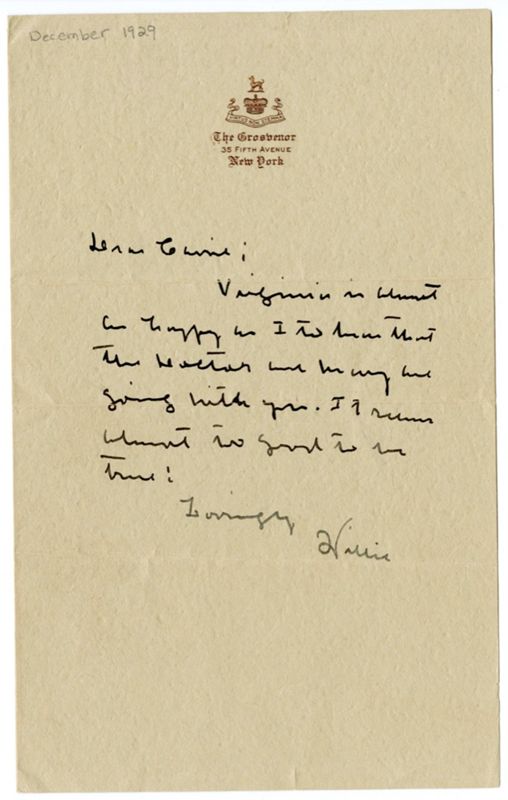 December 1929
The Grosvenor
35 FIFTH AVENUE
New York
Dear Carrie;
Virginia is almost
as happy as I to hear that
the Doctor and Mary are
going with you. It seems
almost too good to be
true!
Lovingly
Willie